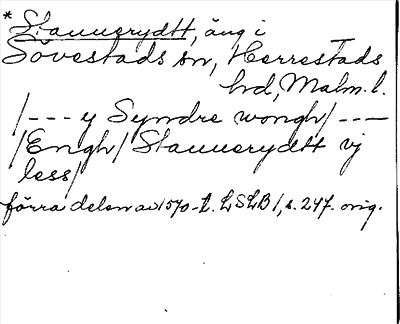 * Stauuerydtt, äng i
Sövestads sn, Herrestads
hd, Malm. l.
/--- y Syndre wongh/ ---
/Engh/ Stauuerydtt vj
less/
förra delen av 1570-t. LSLB 1, s. 247. orig.